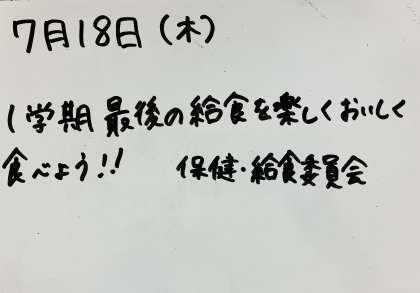 7月18日(木)
1学期最後の給食を楽しくおいしく
食べよう!! 保健・給食委員会